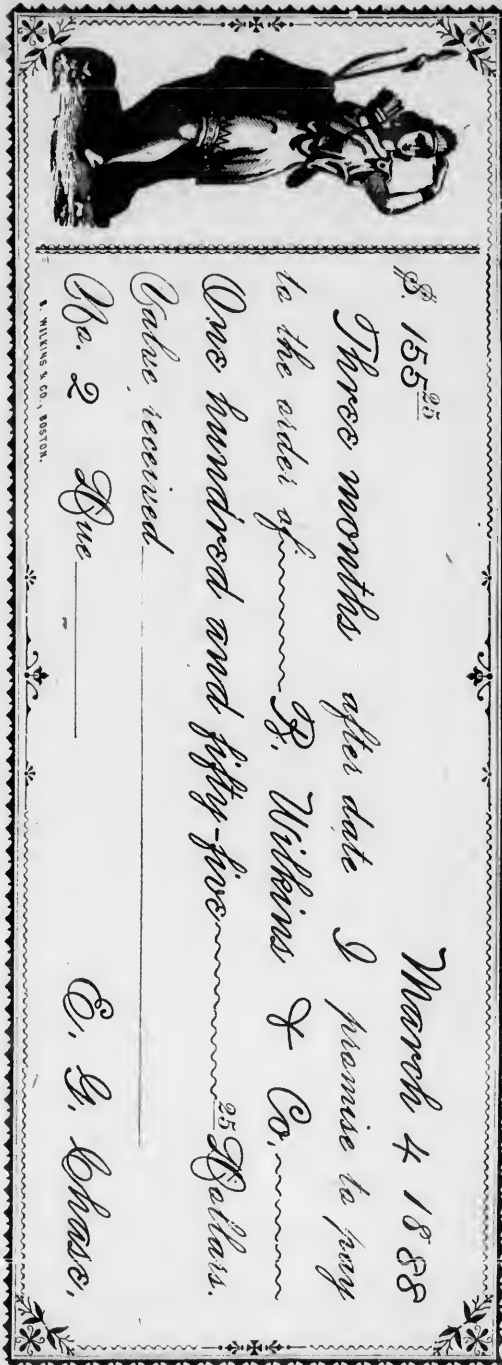 $. 155 25 March 4 1888
Three months after date I promise to pay
to the order of B. Wilkins & Co.
One hundred and fifty-five 25 Dollars.
Value received
No. 2 Due E. G. Chase.
B. WILKINS & CO., BOSTON.